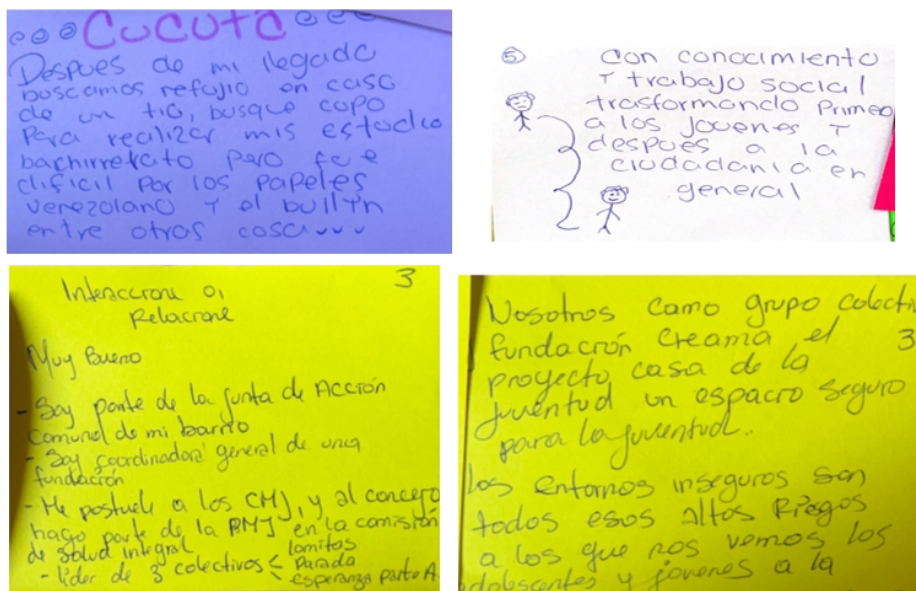 Cucuta
Despues de mi llegada
buscamos refujio en casa
de un tio, busque cupo
para realizar mis estudio
bachirretato pero fue
dificil por los papeles
venezolano y el bullyn
entre otras cosa...
5
Con conocimiento
y trabajo social
trasformando primero
a los jovenes y
despues a la
ciudadania en
general
3
Interaccione o,
Relacione
Muy Bueno
- Soy parte de la junta de Acción
comunal de mi barrio
- Soy coordinadora general de una
fundación
- Me postule a los CMJ, y al concejo
hago parte de la PMJ en la comisión
de salud integral
- lider de 3 colectivos < lomitas
parada
esperanza parte A
Nosotros como grupo colectiv
fundación creama el
3
proyecto casa de la
juventud un espacio seguro
para la juventud.
Los entornos inseguros son
todos esos altos Riegos
a los que nos vemos los
adolescentes y jovenes a la